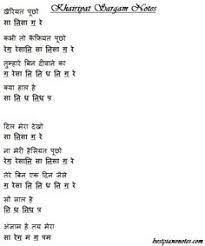 Khairiyat Sargam Notes
खैरियत पूछो
सा तिसा ग रे
कभी तो कैफियत पूछो
रेग रेसाति सा तिसा ग रे
तुम्हारे बिन दीवाने का
रेग रेसाति सा तिसा ग रे
क्या हाल है
सा ति ध तिध प
दिल मेरा देखो
सा तिसा ग रे
ना मेरी हैसियत पूछो
रेग रेसाति सा तिसा ग रे
तेरे बिन एक दिन जैसे
रेग रेसाति सा तिसा ग रे
सौ साल है
सा ति ध तिध
अंजाम है तय मेरा
सा रे ग म ग पम
bestpianonotes.com